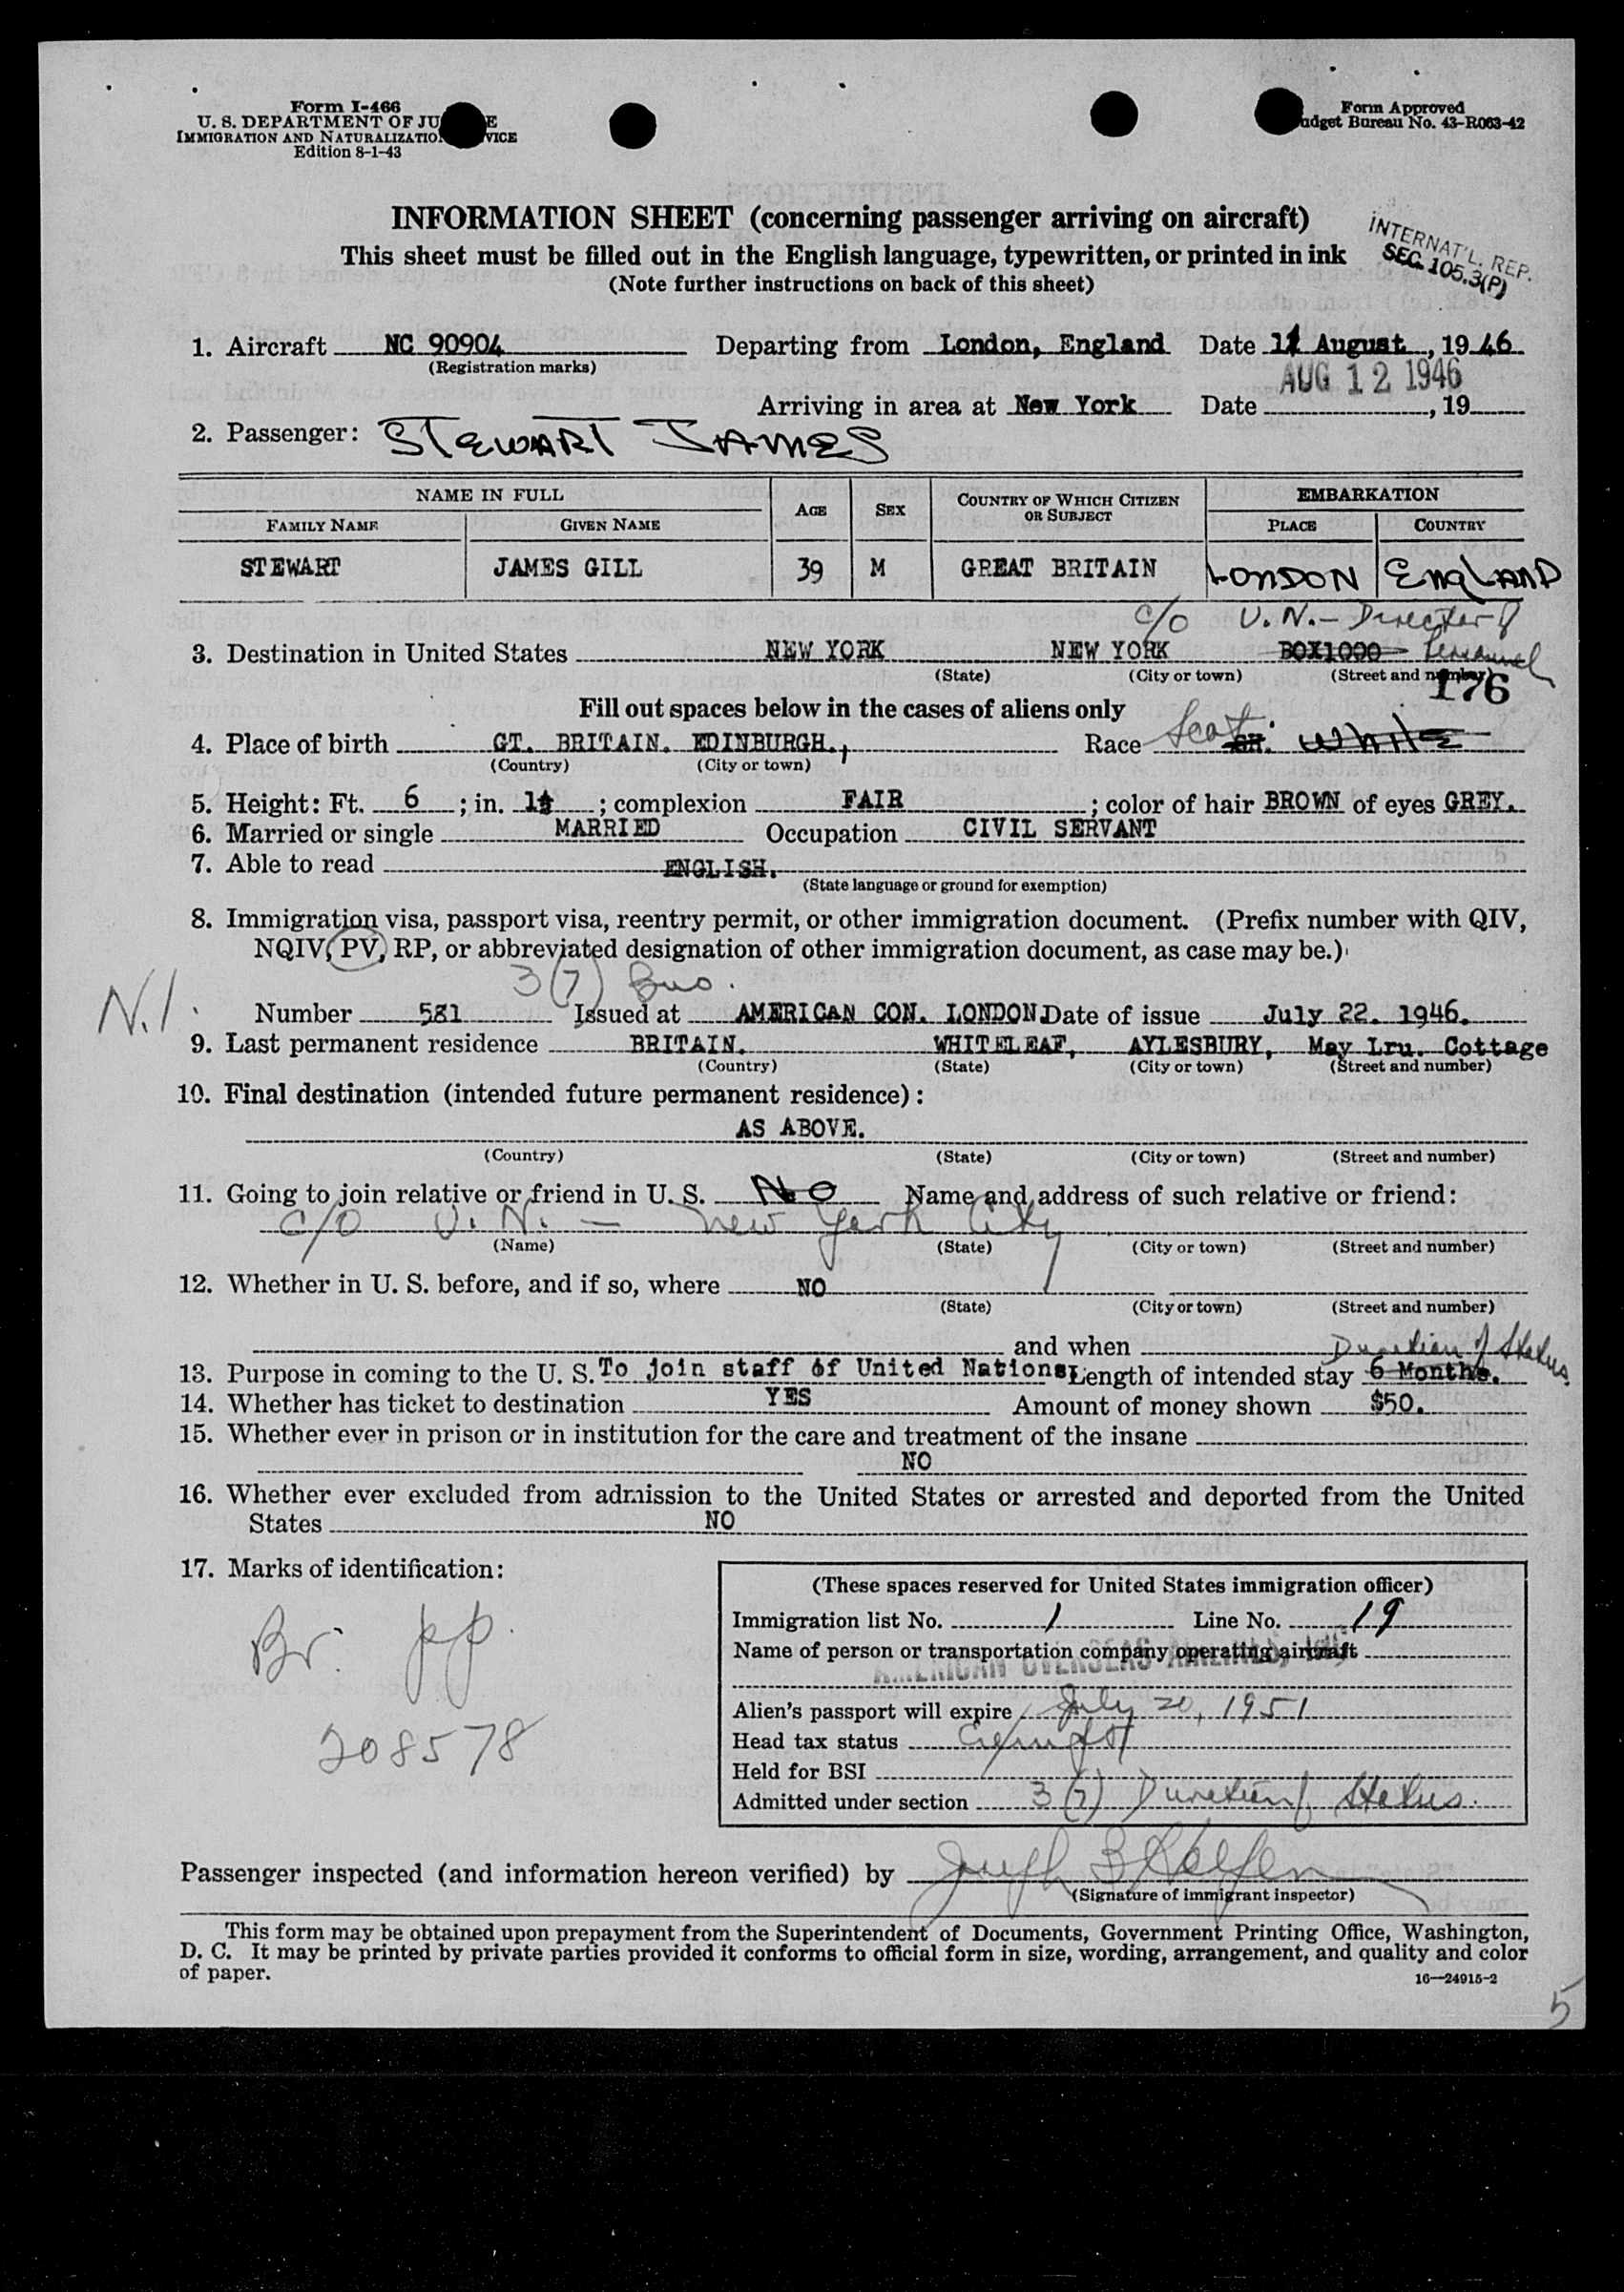 Form I-466
U. S. DEPARTMENT OF JU E
IMMIGRATION AND NATURALIZATIO VICE
Edition 8-1-43
Form Approved
udget Bureau No. 43-R063-42
INFORMATION SHEET (concerning passenger arriving on aircraft)
This sheet must be filled out in the English language, typewritten, or printed in ink
(Note further instructions on back of this sheet)
INTERNAT'L. REP.
SEC. 105.3(P)
1. Aircraft NC 90904 Departing from London, England Date 11 August, 1946
(Registration marks)
AUG 12 1946
Arriving in area at New York Date , 19
2. Passenger: STEWART JAMES
NAME IN FULL AGE SEX COUNTRY OF WHICH CITIZEN OR SUBJECT EMBARKATION
FAMILY NAME GIVEN NAME PLACE COUNTRY
STEWART JAMES GILL 39 M GREAT BRITAIN LONDON ENGLAND
c/o U.N. - Director of
3. Destination in United States NEW YORK NEW YORK BOX1000 Personnel
(State) (City or town) (Street and number)
176
Fill out spaces below in the cases of aliens only
4. Place of birth GT. BRITAIN. EDINBURGH., Race Scot. White
(Country) (City or town)
5. Height: Ft. 6 ; in. 1 ; complexion FAIR ; color of hair BROWN of eyes GREY.
6. Married or single MARRIED Occupation CIVIL SERVANT
7. Able to read ENGLISH.
(State language or ground for exemption)
8. Immigration visa, passport visa, reentry permit, or other immigration document. (Prefix number with QIV,
NQIV, PV, RP, or abbreviated designation of other immigration document, as case may be.)
3(7)
N.I.
Number 581 Issued at AMERICAN CON. LONDON Date of issue July 22. 1946.
9. Last permanent residence BRITAIN. WHITELEAF, AYLESBURY, May Lru. Cottage
(Country) (State) (City or town) (Street and number)
10. Final destination (intended future permanent residence):
AS ABOVE.
(Country) (State) (City or town) (Street and number)
11. Going to join relative or friend in U. S. NO Name and address of such relative or friend:
c/o U.N. - New York City
(Name) (State) (City or town) (Street and number)
12. Whether in U. S. before, and if so, where NO
(State) (City or town) (Street and number)
and when
Duration of Status
13. Purpose in coming to the U. S. To join staff of United Nations Length of intended stay 6 Months.
14. Whether has ticket to destination YES Amount of money shown $50.
15. Whether ever in prison or in institution for the care and treatment of the insane
NO
16. Whether ever excluded from admission to the United States or arrested and deported from the United
States NO
17. Marks of identification:
Br. pp.
208578
(These spaces reserved for United States immigration officer)
Immigration list No. 1 Line No. 19
Name of person or transportation company operating aircraft
AMERICAN OVERSEAS AIRLINES, INC.
Alien's passport will expire July 20, 1951
Head tax status Exempt
Held for BSI
Admitted under section 3(7) Duration of Status.
Passenger inspected (and information hereon verified) by Joseph B
(Signature of immigrant inspector)
This form may be obtained upon prepayment from the Superintendent of Documents, Government Printing Office, Washington,
D. C. It may be printed by private parties provided it conforms to official form in size, wording, arrangement, and quality and color
of paper.
16—24915-2
5